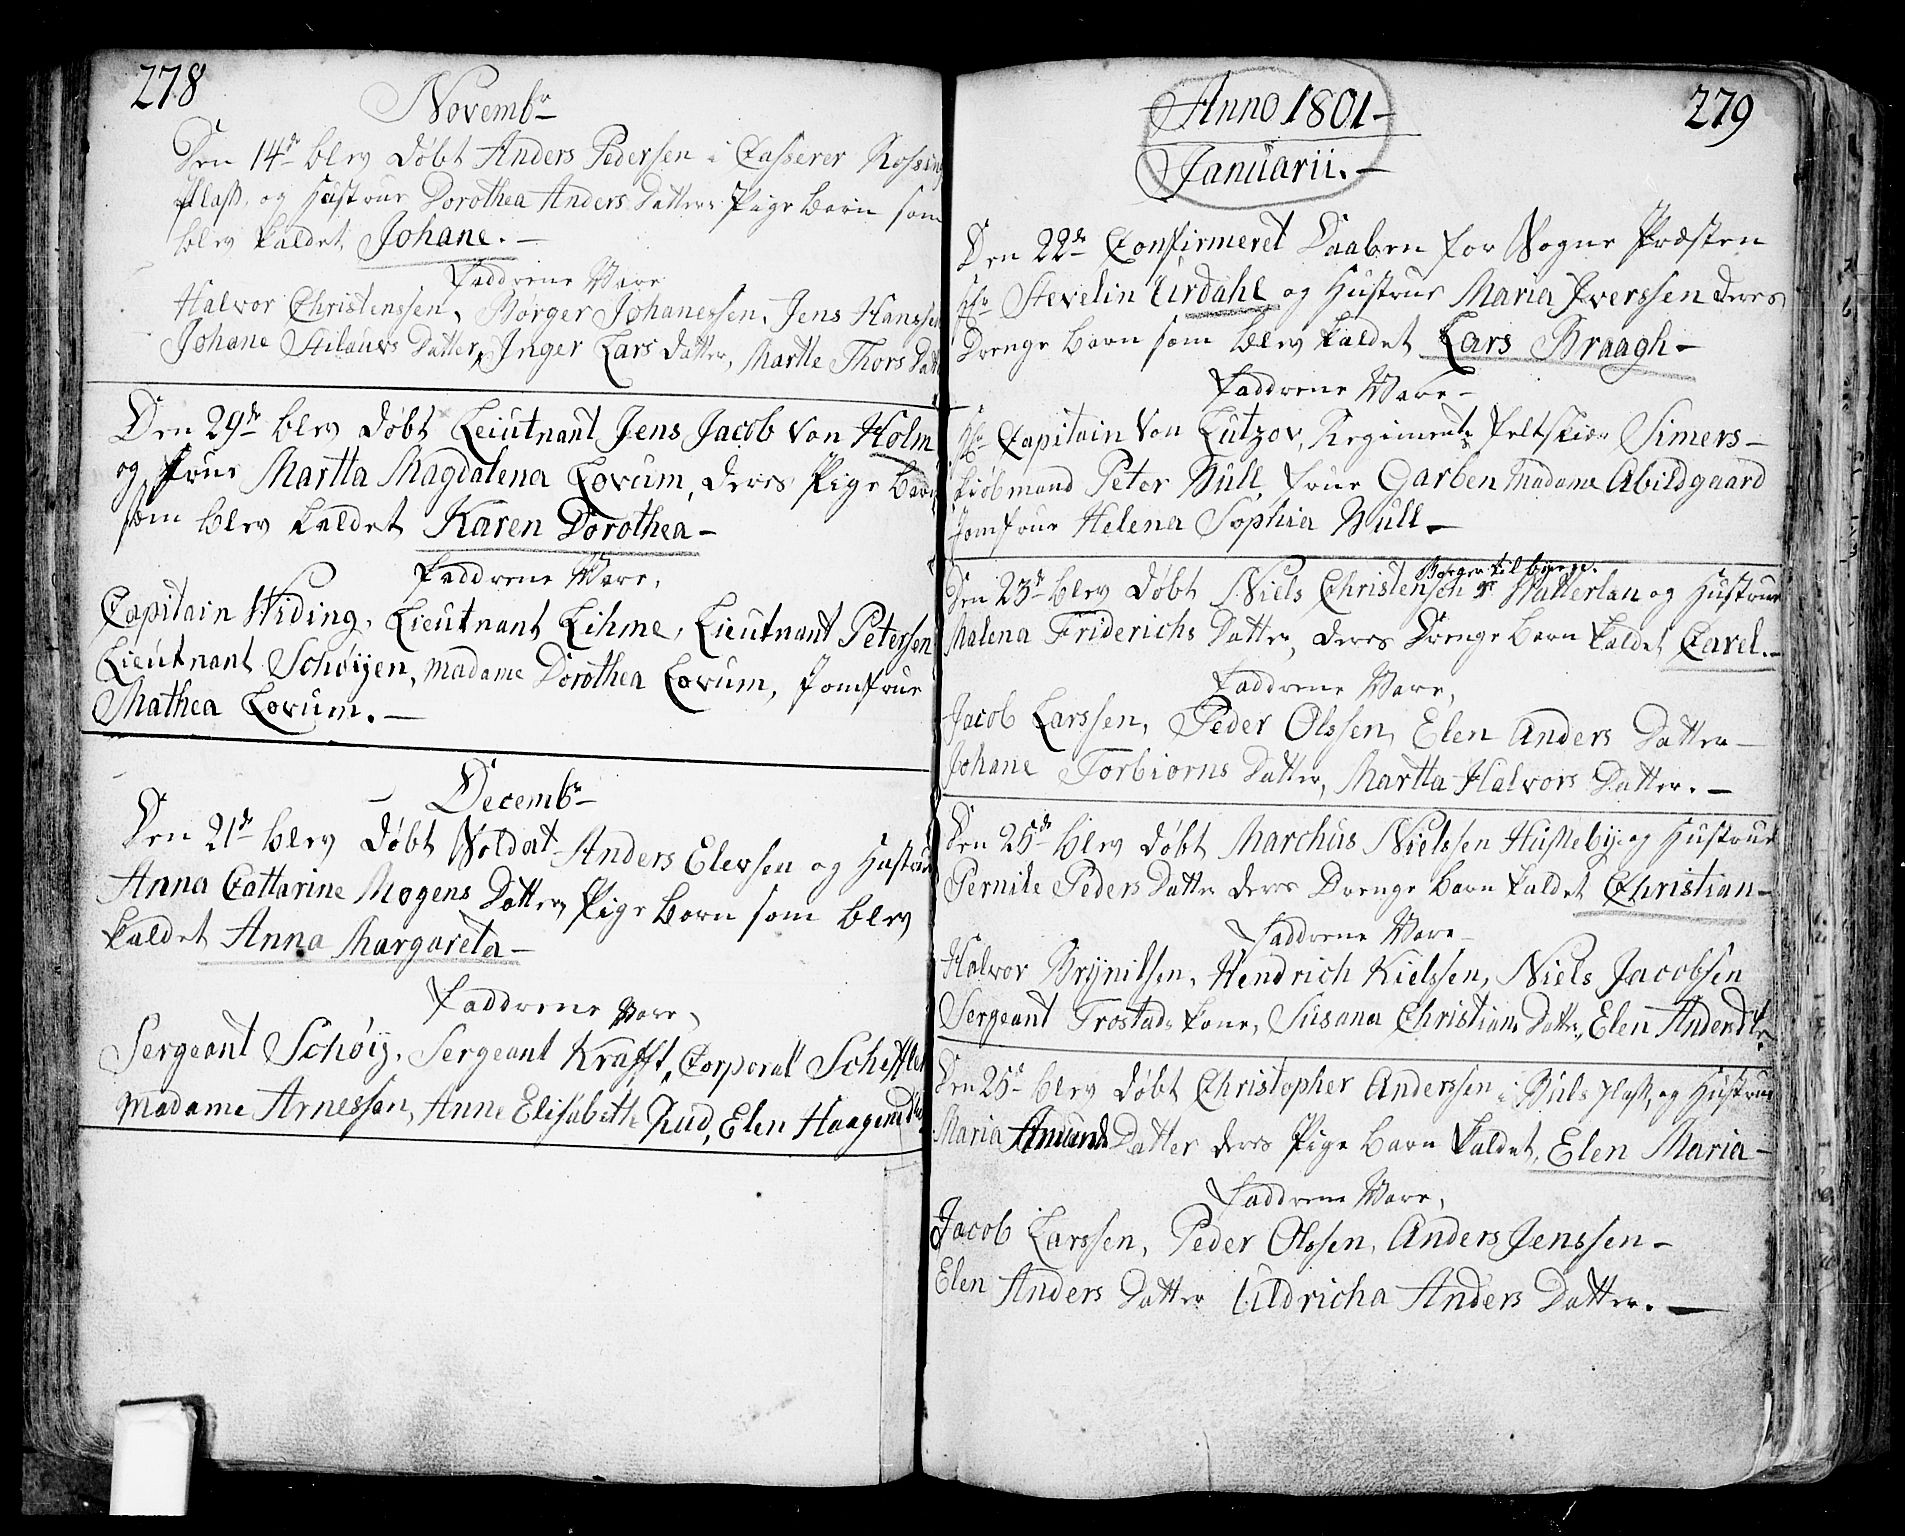 278
Novembr
Den 14de blev døbt Anders Pedersen i Casserer Rossing
Plads, og Hustrue Dorothea Anders Datters Pige Barn som
blev kaldet Johane.
Faddrene Vare
Halvor Christenssen, Børger Johanessen, Jens Hanssen
Johane Datter, Inger Lars Datter, Marthe Thors
Den 29de blev døbt Leiutnant Jens Jacob von Holm
og frue Martta Magdalena Lovum, deres Pige Barn
som blev kaldet Karen Dorothea
Faddrene Vare,
Capitain Widing, Lieutnant Lihme, Lieutnant Petersen
Lieutnant Schøijen, Madame Dorothea Lovum, Jomfrue
Mathea Lovum.
Decembr
Den 21de blev døbt Soldat Anders Elevsen og Hustrue
Anna Cattarine Mogens Datter, Pige Barn som blev
kaldet Anna Margareta
Faddrene Vare,
Sergeant Schøij, Sergeant Krafft, Corporal Scheffler
Madame Arnessen, Anne Elisabetth Rud, Elen
279
Anno 1801
Januarii.
Den 22de Confirmeret Daaben for Sogne Præsten
Hr Stevelin Urdahl og Hustrue Maria Iverssen deres
Drenge Barn som blev kaldet Lars Braagh
Faddrene Vare
Hr Capitain von Lutzov, Regiments feltskiær Simers
kiøbmand Peter Bull, frue Garben Madame Abildgaard
Jomfrue Helena Sophia Bull
Borger til
Den 23de blev døbt Niels Christensen og Hustrue
Malena Friderichs Datter, deres Drenge Barn kaldet Carel.
Faddrene Vare,
Jacob Larssen, Peder Olssen, Elen Anders Datter
Johane Torbiørns Datter, Martta Halvors Datter.
Den 25de blev døbt Marchus Nielssen Husebÿe og Hustrue
Pernile Peders Datter deres Drenge Barn kaldet Christian
Faddrene Vare
Halvor Brynilsen, Hendrich Kielssen, Niels Jacobsen
Sergeant Trostads kone, Susana Christians Datter, Elen
Den 25de blev døbt Christopher Anderssen i Buls Plads, og Hustrue
Maria Amunds Datter deres Pige Barn kaldet, Elen Maria
Faddrene Vare,
Jacob Larssen, Peder Olssen, Anders Jenssen
Elen Anders Datter Uldricha Anders Datter.